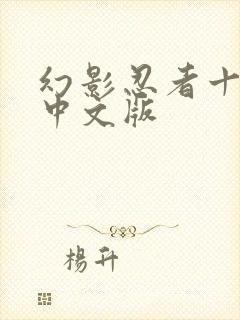 幻影忍者十
中文版
楊升